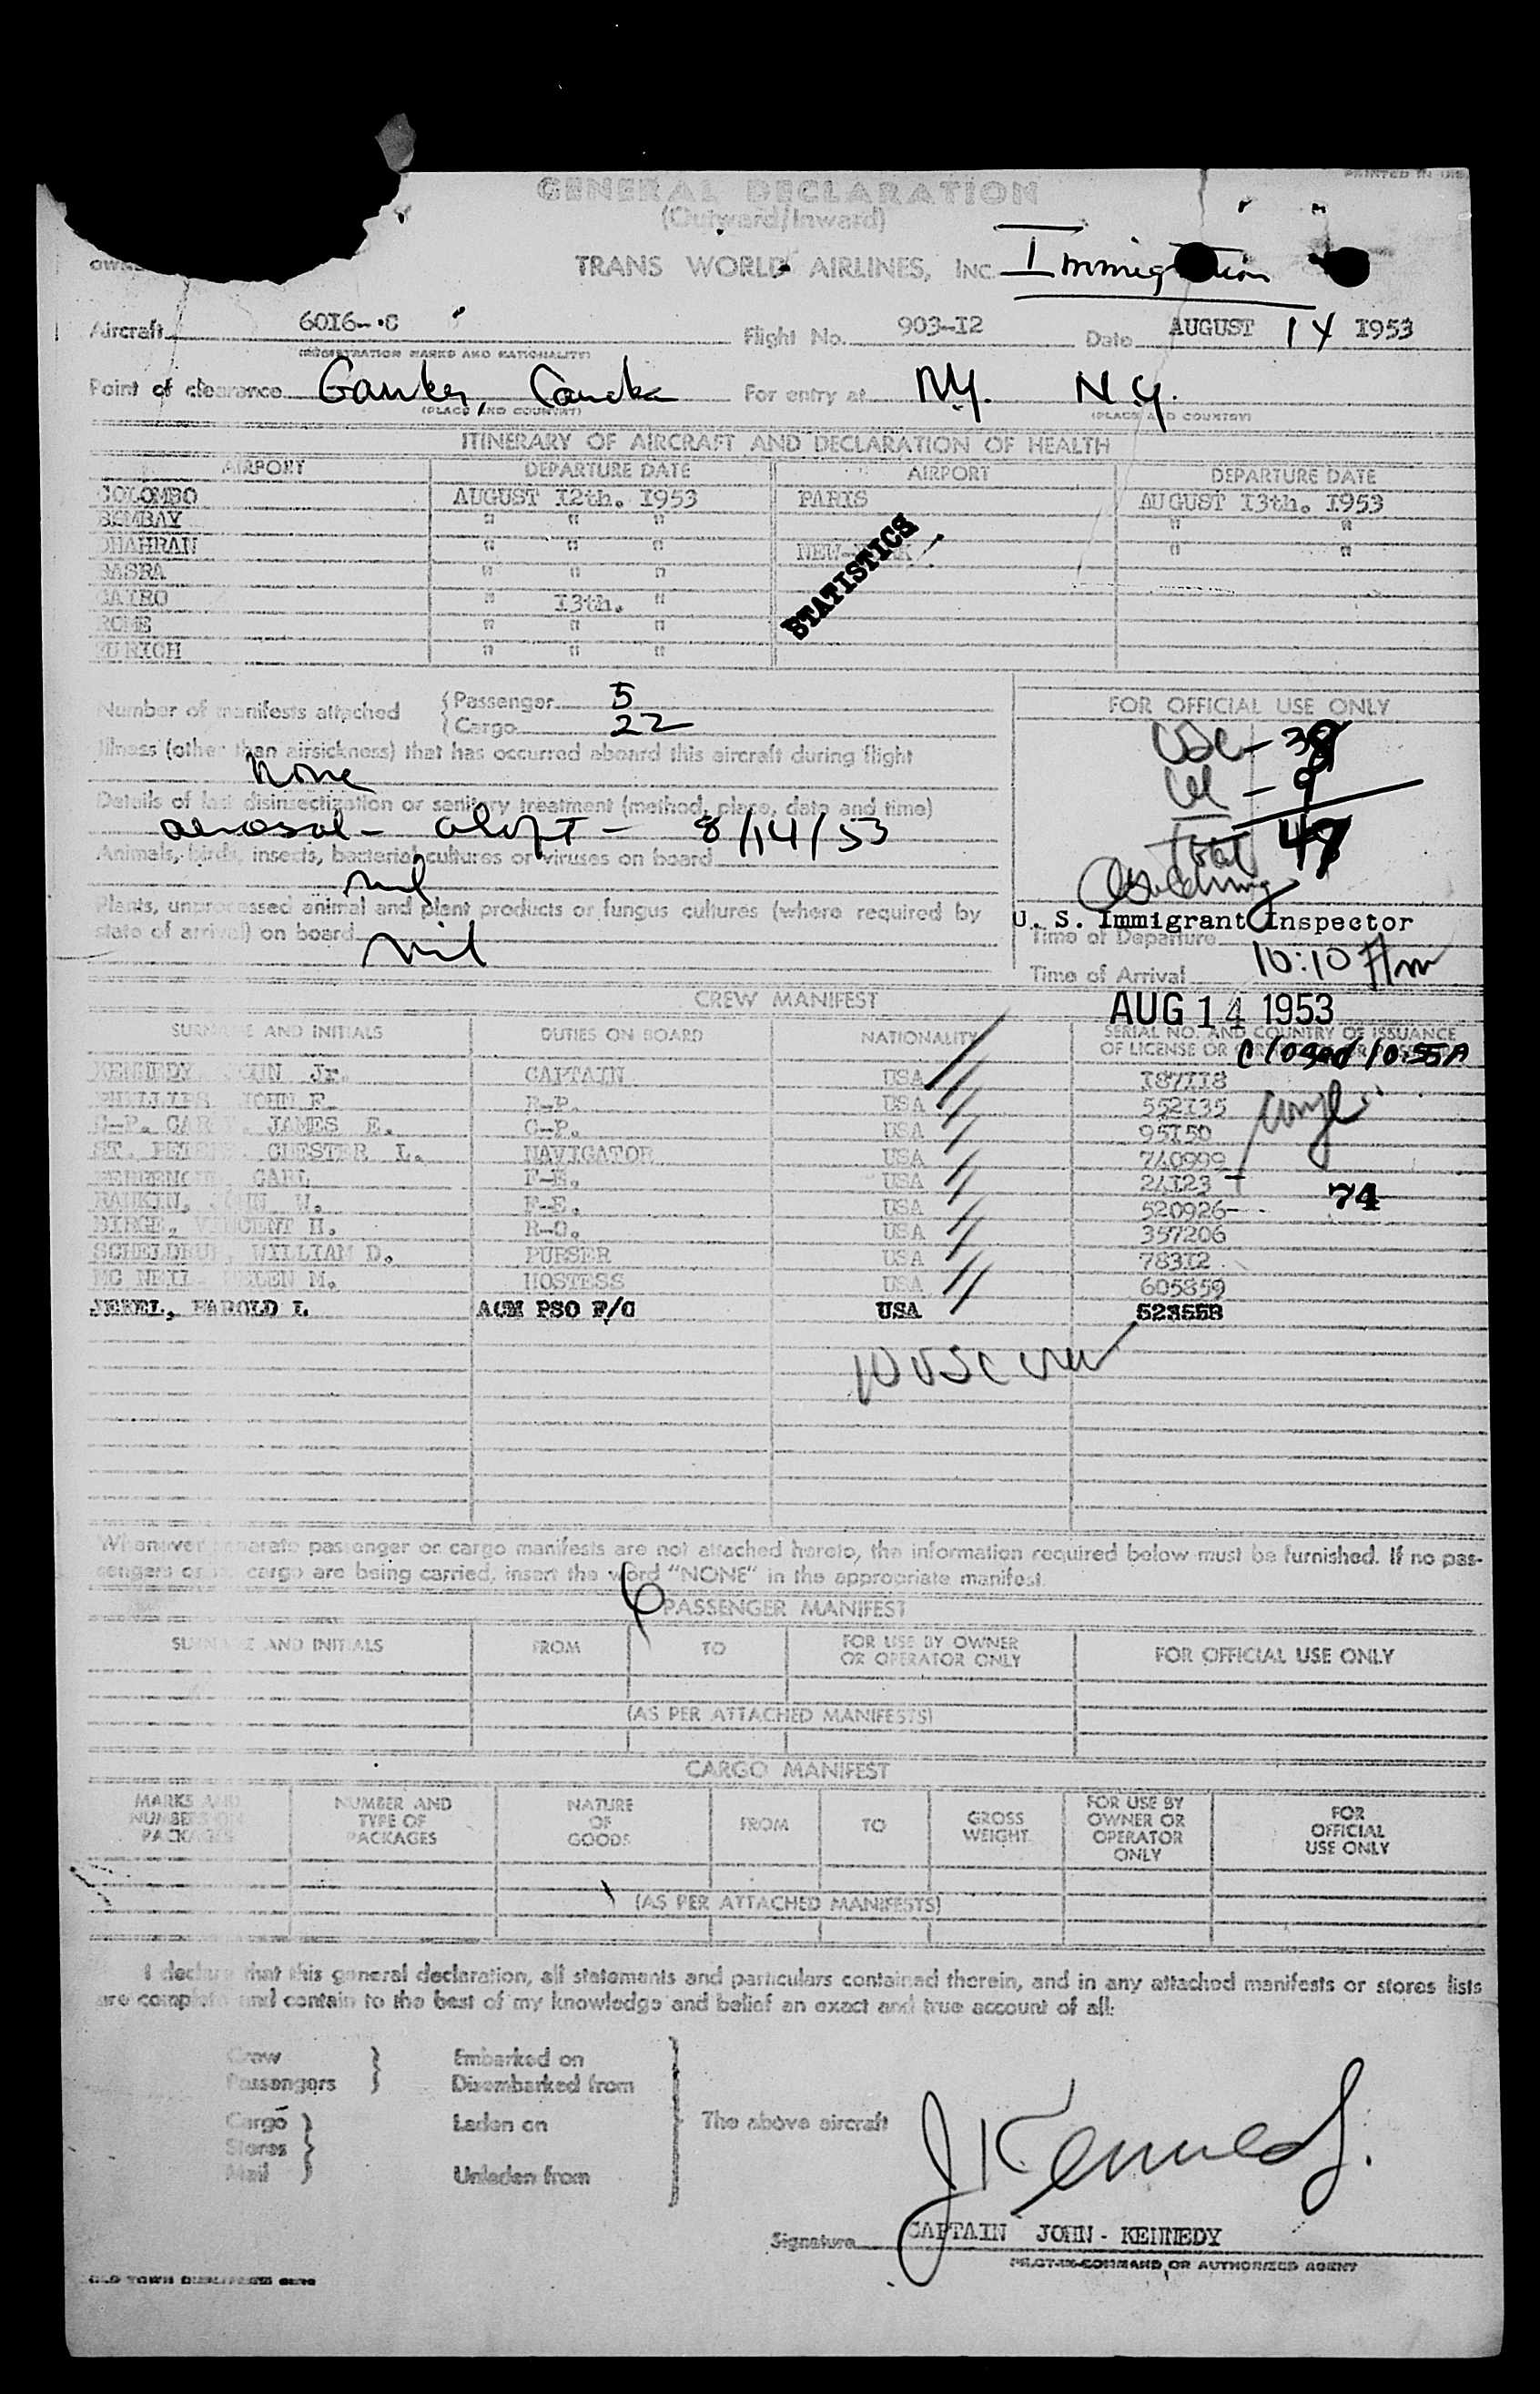 PRINTED IN U.S.
GENERAL DECLARATION
(Outward/Inward)
TRANS WORLD AIRLINES, INC. Immigration
Aircraft 6016- C Flight No. 903-12 Date AUGUST 14 1953
(REGISTRATION MARKS AND NATIONALITY)
Point of clearance Gander, Canada For entry at N.Y. N.Y.
(PLACE AND COUNTRY) (PLACE AND COUNTRY)
ITINERARY OF AIRCRAFT AND DECLARATION OF HEALTH
AIRPORT DEPARTURE DATE AIRPORT DEPARTURE DATE
COLOMBO AUGUST 12th. 1953 PARIS AUGUST 13th. 1953
BEMBAY " " " " "
DHAHRAN " " " NEW-YORK " "
BASRA " " "
CAIRO " 13th. "
ROME " " "
ZURICH " " "
STATISTICS
Number of manifests attached { Passenger 5
{ Cargo 22
FOR OFFICIAL USE ONLY
USC - 38
- 9
Total 47
Illness (other than airsickness) that has occurred aboard this aircraft during flight
None
Details of last disinsectization or sanitary treatment (method, place, date and time)
aerosol - aloft - 8/14/53
Animals, birds, insects, bacterial cultures or viruses on board
nil
Plants, unprocessed animal and plant products or fungus cultures (where required by
state of arrival) on board nil
U. S. Immigrant Inspector
Time of Departure
Time of Arrival 10:10 Am
AUG 14 1953
CREW MANIFEST
SURNAME AND INITIALS DUTIES ON BOARD NATIONALITY SERIAL NO. AND COUNTRY OF ISSUANCE
OF LICENSE OR
Closed 10:55A
KENNEDY, JOHN Jr. CAPTAIN USA 187118
PHILLIPS, JOHN F. R-P. USA 552135
C-P. JAMES E. C-P. USA 95150
ST. CHESTER L. NAVIGATOR USA 740999
CARL F-E. USA 24123
RANKIN, JOHN W. F-E. USA 520926-
VINCENT H. R-O. USA 357206
WILLIAM D. PURSER USA 78312
MC NEIL HELEN M. HOSTESS USA 605859
HAROLD I. ACM PSO F/C USA 523558
74
10 USC crew
Whenever separate passenger or cargo manifests are not attached hereto, the information required below must be furnished. If no pas-
sengers or no cargo are being carried, insert the word "NONE" in the appropriate manifest.
PASSENGER MANIFEST
SURNAME AND INITIALS FROM TO FOR USE BY OWNER
OR OPERATOR ONLY FOR OFFICIAL USE ONLY
(AS PER ATTACHED MANIFESTS)
CARGO MANIFEST
MARKS AND
NUMBERS ON
PACKAGES NUMBER AND
TYPE OF
PACKAGES NATURE
OF
GOODS FROM TO GROSS
WEIGHT FOR USE BY
OWNER OR
OPERATOR
ONLY FOR
OFFICIAL
USE ONLY
(AS PER ATTACHED MANIFESTS)
I declare that this general declaration, all statements and particulars contained therein, and in any attached manifests or stores lists
are complete and contain to the best of my knowledge and belief an exact and true account of all:
Crew } Embarked on
Passengers } Disembarked from
Cargo } Laden on The above aircraft
Stores }
Mail } Unladen from
J Kennedy.
Signature CAPTAIN JOHN - KENNEDY
PILOT-IN-COMMAND OR AUTHORIZED AGENT